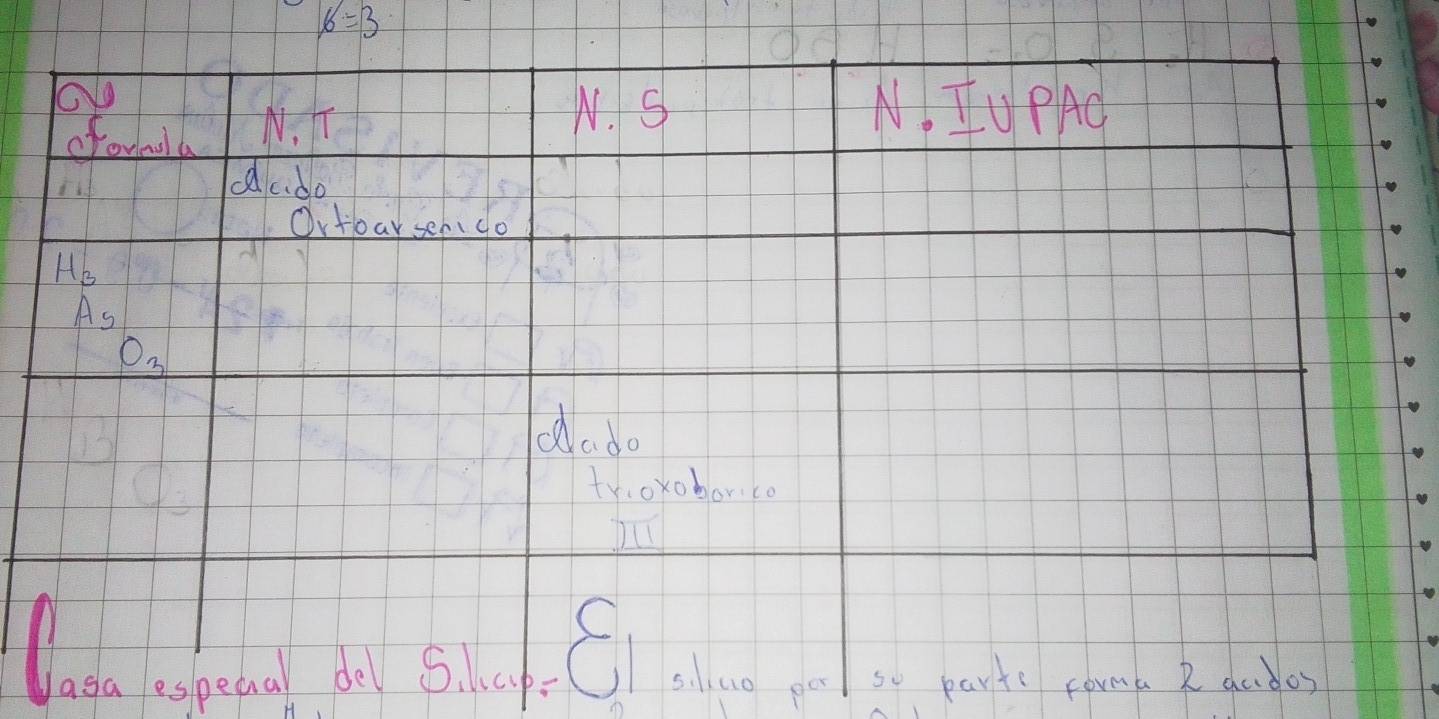 6=3
Formula
N.T
N. S
N. IUPAC
Acido
Ortoarsenico
H3
As
O3
Acido
trioxoborico
III
Casa especial del Silicio.- El silicio por su parte forma 2 acidos